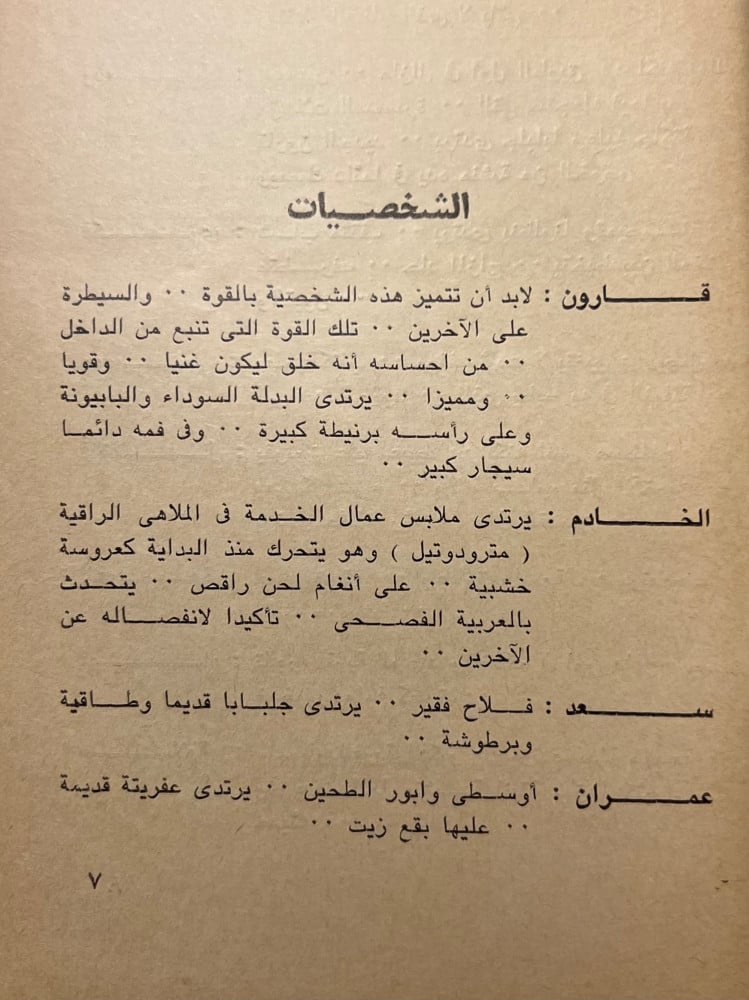 الشخصيات
قارون : لابد أن تتميز هذه الشخصية بالقوة ٠٠ والسيطرة
على الآخرين ٠٠ تلك القوة التى تنبع من الداخل
٠٠ من احساسه أنه خلق ليكون غنيا ٠٠ وقويا
٠٠ ومميزا ٠٠ يرتدى البدلة السوداء والبابيونة
وعلى رأسه برنيطة كبيرة ٠٠ وفى فمه دائما
سيجار كبير ٠٠
الخادم : يرتدى ملابس عمال الخدمة فى الملاهى الراقية
( مترودوتيل ) وهو يتحرك منذ البداية كعروسة
خشبية ٠٠ على أنغام لحن راقص ٠٠ يتحدث
بالعربية الفصحى ٠٠ تأكيدا لانفصاله عن
الآخرين ٠٠
سعد : فلاح فقير ٠٠ يرتدى جلبابا قديما وطاقية
وبرطوشة ٠٠
عمران : أوسطى وابور الطحين ٠٠ يرتدى عفريتة قديمة
٠٠ عليها بقع زيت ٠٠
٧